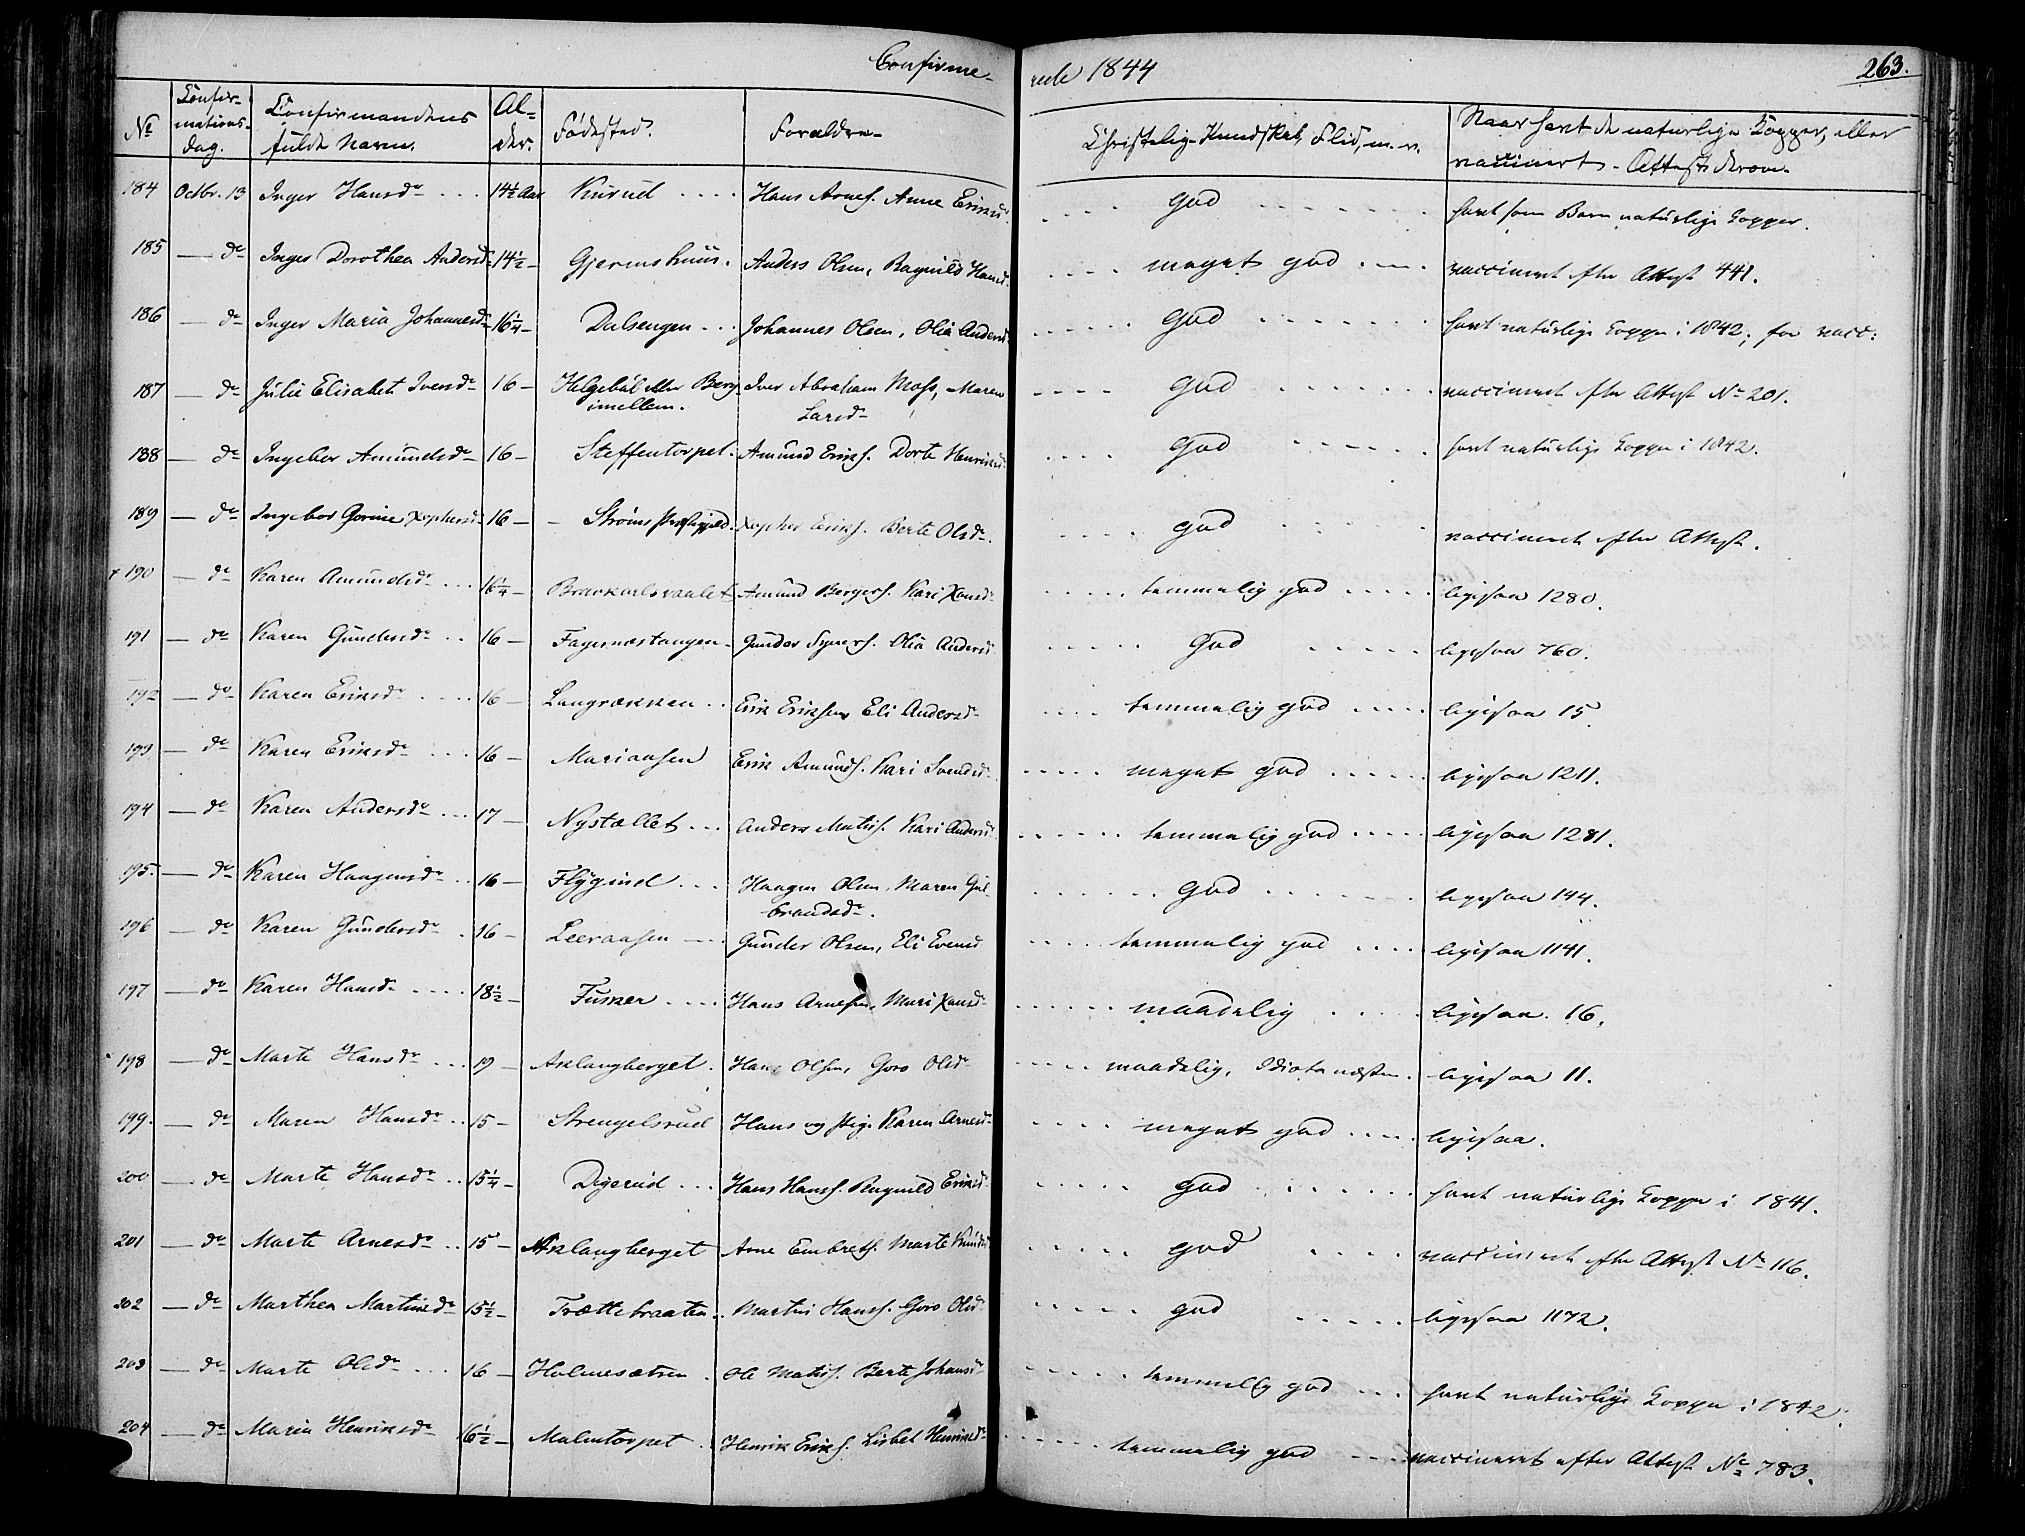 Confirme- rede 1844 263.
No Confirmations-dag. Confirmandens fulde Navn. Alder. Fødested. Forældre. Christelig Kundskab, Flid, m. v. Naar havt de naturlige Kopper, eller vaccineret. Attests derom.
184 Octbr. 13 Inger Hansdr 14½ Aar Kurud Hans Arnes. Anne Eriksd. god havt som Barn naturlige Kopper.
185 — do Inger Dorothea Andersd. 14½ — Gjermshuus. Anders Olsen, Ragnild Hansd. meget god vaccineret efter Attest 441.
186 — do Inger Maria Johannesdr 16¼ — Dalsengen Johannes Olsen, Olia Andersd. god havt naturlige Kopper i 1842; før vacc:
187 — do Julie Elisabet Iversdr 16 — Helgebøl eller Berg Iver Abraham Moss, Maren god vaccineret efter Attest No 201.
imellem. Larsdr
188 — do Ingebor Amundsdr 16 — Steffentorpet. Amund Eriks. Dorte Henriksd. god havt naturlige Kopper i 1842.
189 — do Ingebor Gorine Xophersd. 16 — Strøms Præstegjeld. Xopher Eriks. Berte Olsdr. god vaccineret efter Attest.
+ 190 — do Karen Amundsdr 16¼ — Amund Bergers. Kari Hansdr temmelig god ligesaa 1280.
191 — do Karen Gundersdr 16 — Fagernæstangen Gunder Olia Andersd. god ligesaa 760.
192 — do Karen Eriksdr 16 — Langrækken Erik Eriksen Eli Andersdr temmelig god ligesaa 15.
193 — do Karen Eriksdr 16 — Mariaasen Erik Amunds. Kari Svendsd. meget god ligesaa 1211.
194 — do Karen Andersdr 17 — Nystællet Anders Matis. Kari Andersd. temmelig god ligesaa 1281.
195. — do Karen Haagensdr 16 — Flygind Haagen Olsen, Maren Gul- god ligesaa 144.
brandsdr.
196 — do Karen Gundersdr 16 — Leeraasen Gunder Olsen, Eli Evensd temmelig god ligesaa 1141.
197 — do Karen Hansdr 18½ — Fusker Hans Arnesen, Mari Hansdr maadelig ligesaa 16.
198 — do Marte Hansdr 19 — Aslangberget. Hans Olsen, Goro Olsdr maadelig, Idiot næsten. ligesaa 11.
199. — do Maren Hansdr 15 — Strengelsrud Hans og Pige Karen Arnesd. meget god ligesaa.
200 — do Marte Hansdr 15¼ — Digerud Hans Hans. Ragnild Eriksd. god havt naturlige Kopper i 1841.
201 — do Marte Arnesdr 15 — Aslangberget Arne Embrets. Marte Knudsd. god vaccineret efter Attest No 116.
202 — do Marthea Martinsdr 15½ — Trættebraaten Martin Hans. Goro Olsd. god ligesaa 1172.
203 — do Marte Olsdr 16 — Holmesætren Ole Matis. Berte Johansd. temmelig god havt naturlige Kopper i 1842.
204 — do Maria Henriksdr 16½ — Malmtorpet Henrik Eriks. Lisbet Henriksdr temmelig god vaccineret efter Attest No 783.